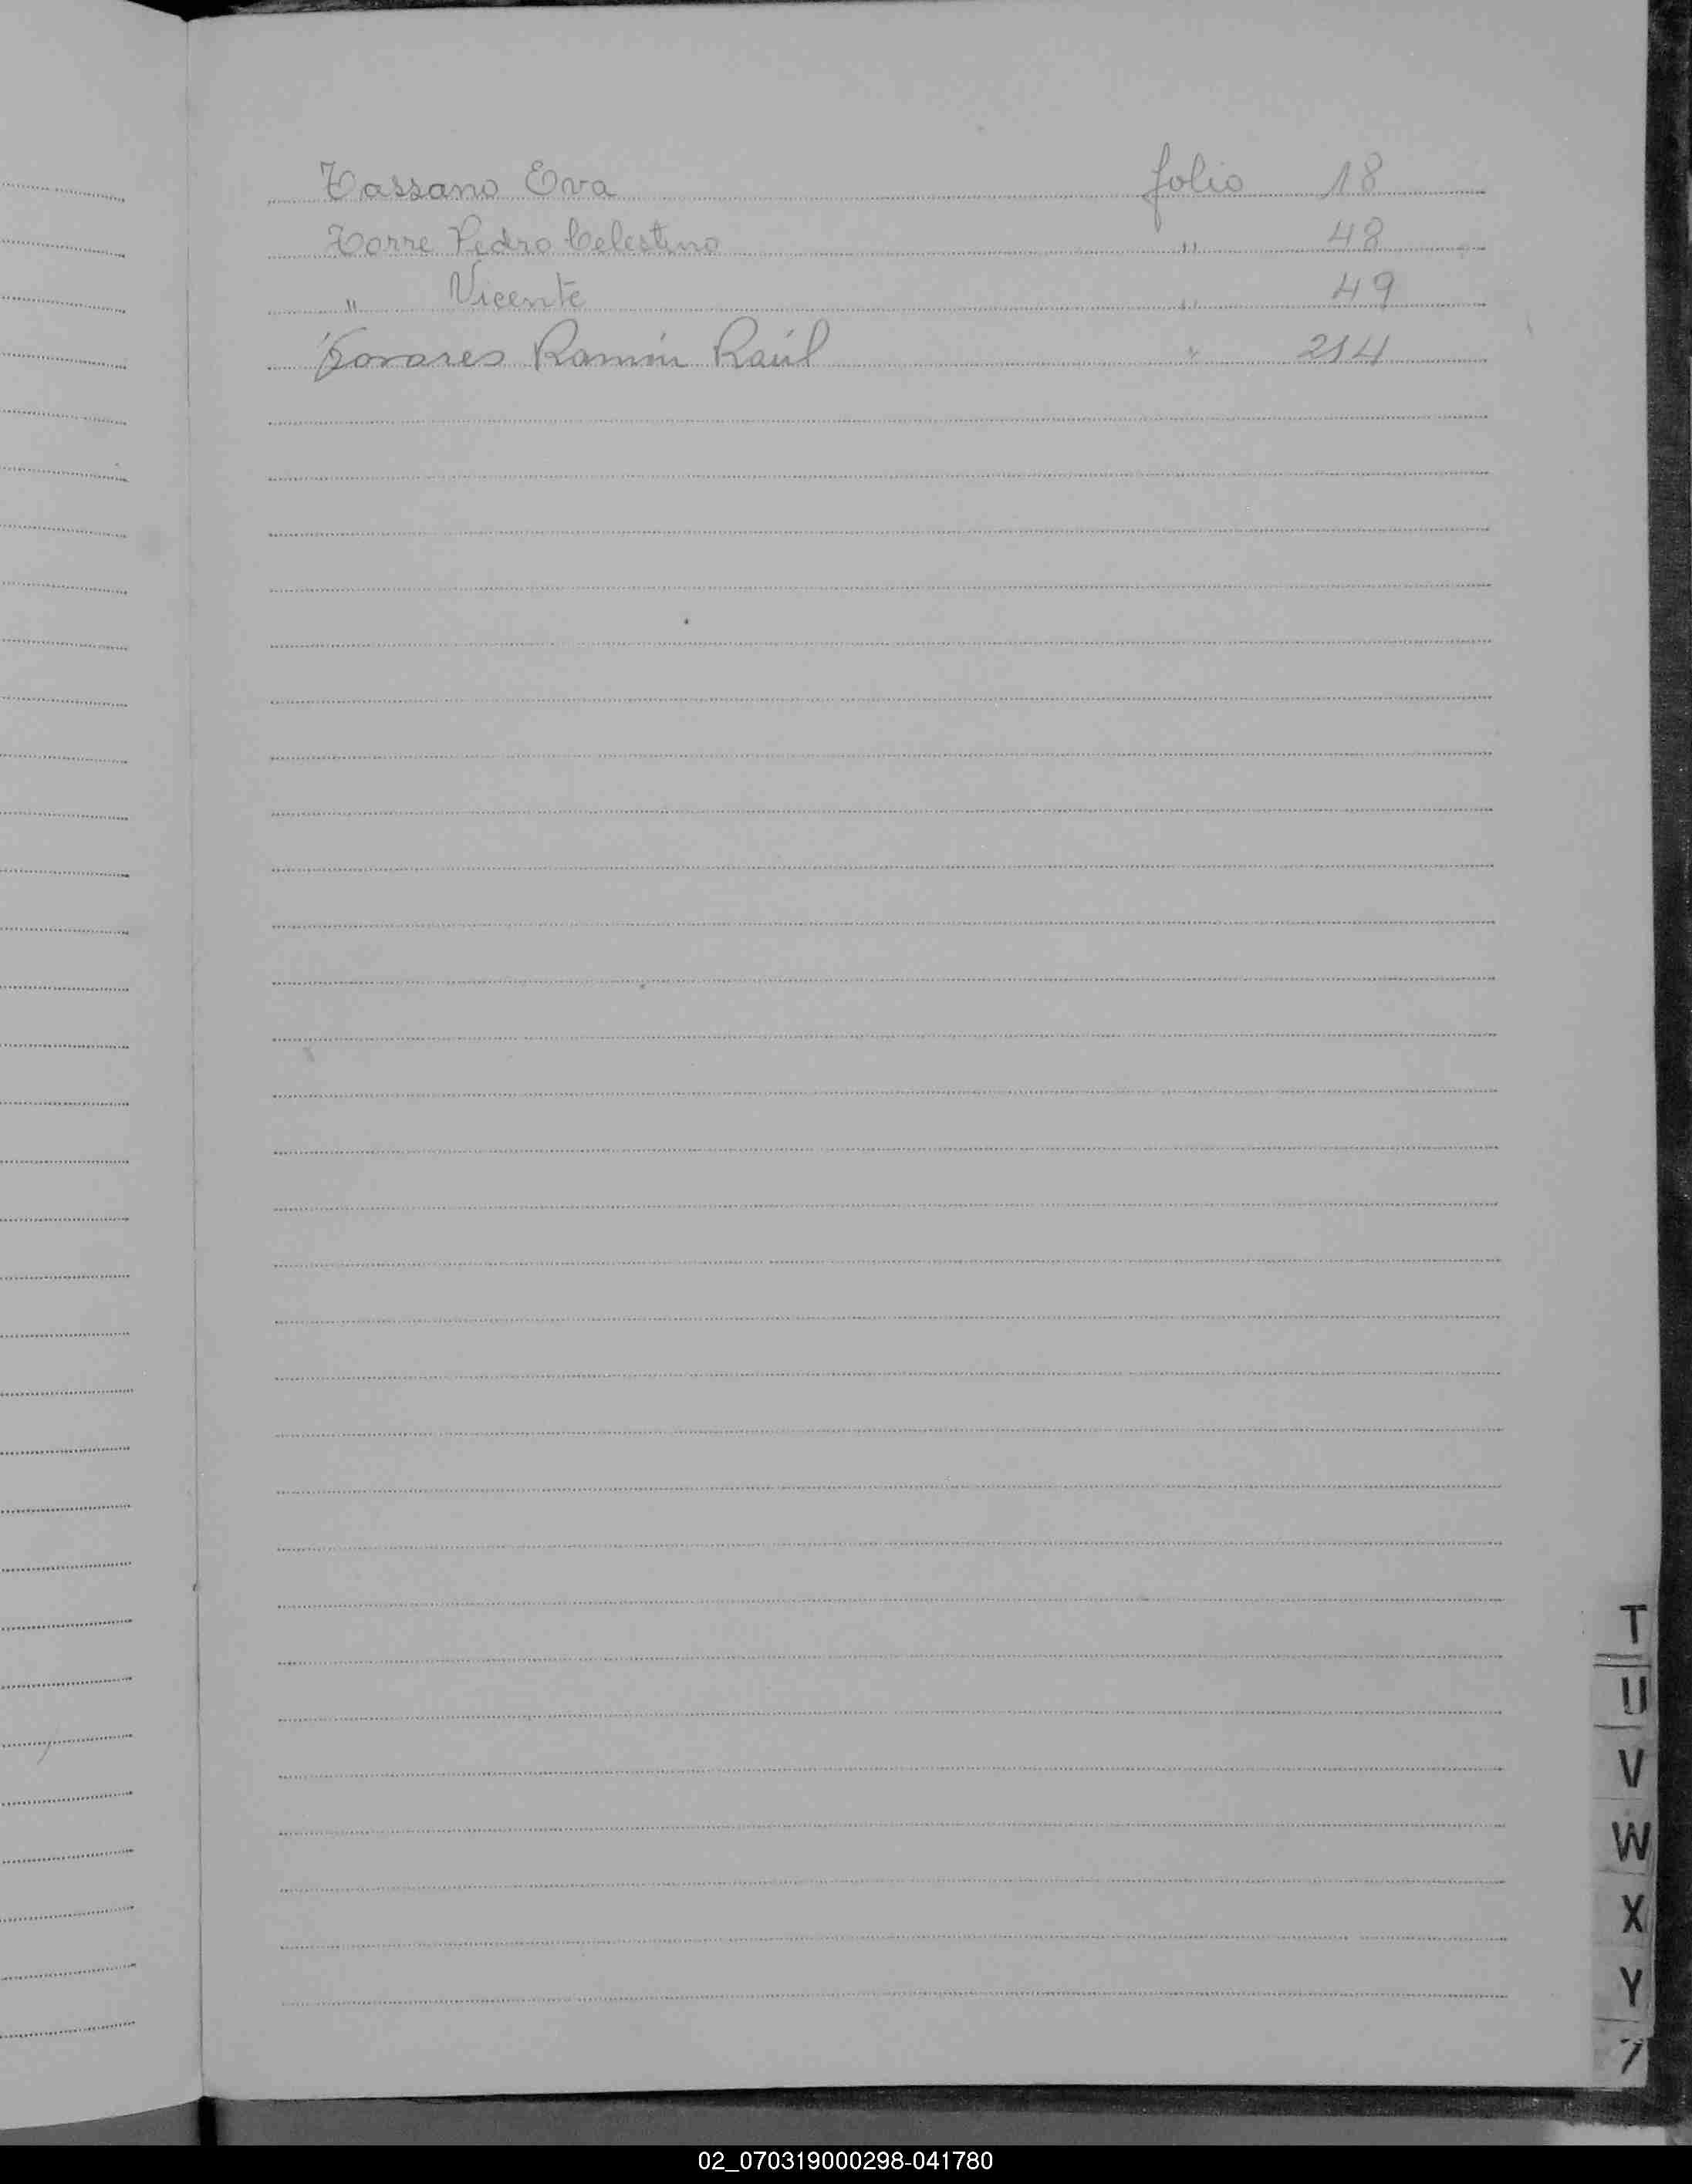 Tassano Eva folio 18
Torre Pedro Celestino " 48
" Vicente " 49
Tavares Ramón Raúl " 214
T
U
V
W
X
Y
Z
02_070319000298-041780